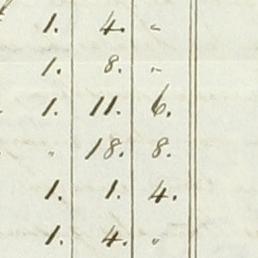 1. 4. "
1. 8. "
1. 11. 6.
" 18. 8.
1. 1. 4.
1. 4. "